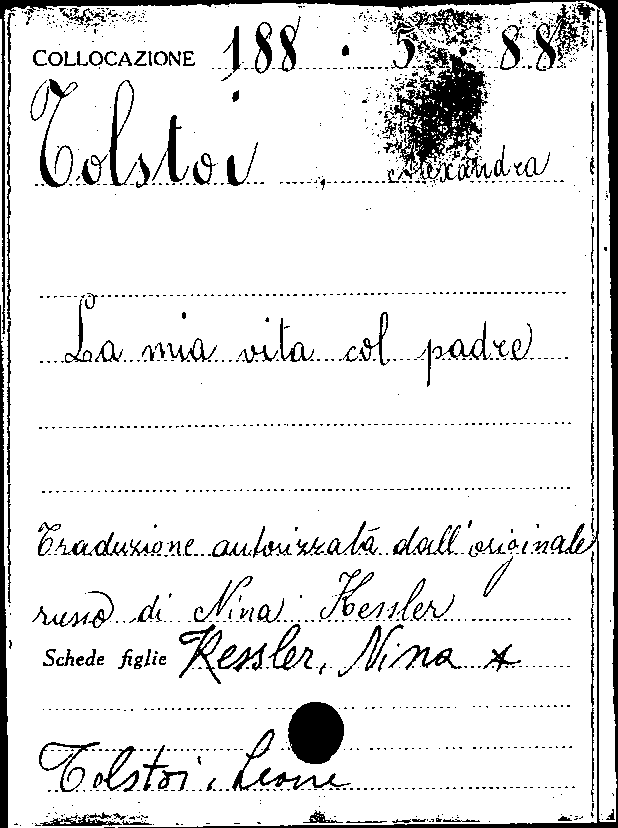 COLLOCAZIONE 188 . 5 . 88
Tolstoi , Alexandra
La mia vita col padre
Traduzione autorizzata dall'originale
russo di Nina Kessler
Schede figlie Kessler, Nina x
Tolstoi, Leone